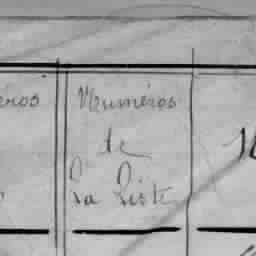 Numéros
de
La Liste